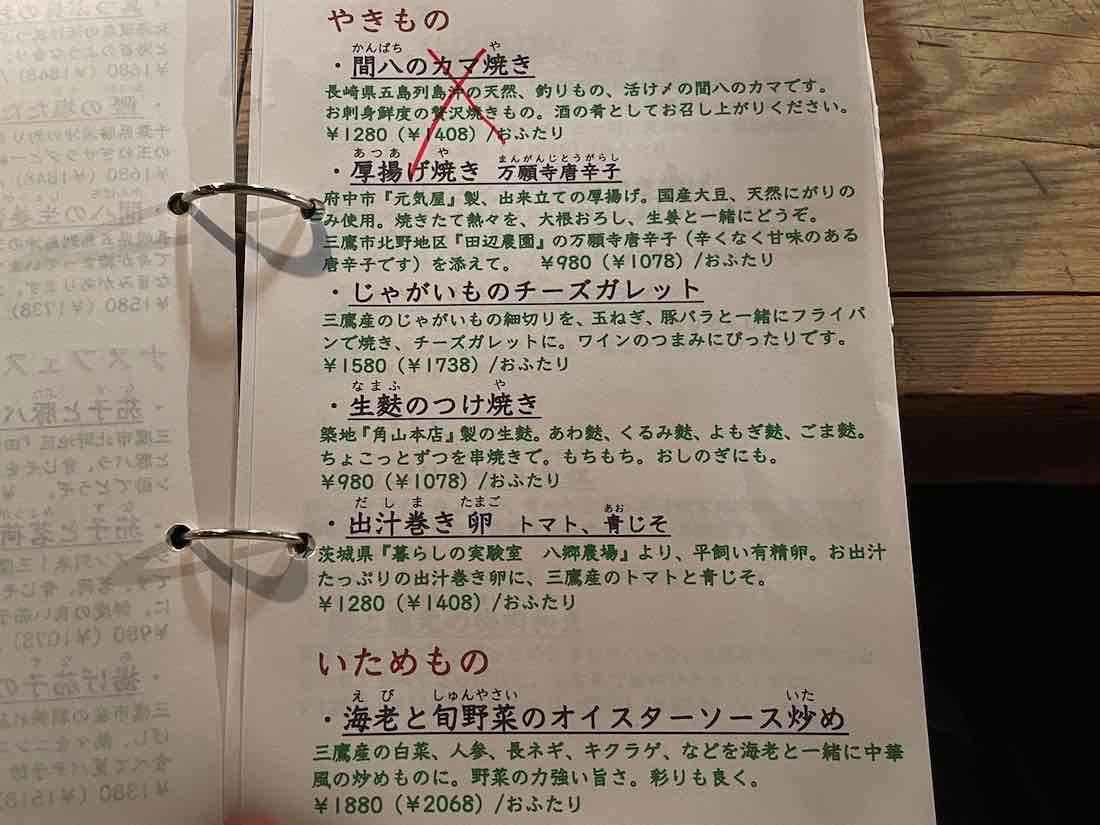 やきもの
・間八のカマ焼き
かんぱち や
長崎県五島列島沖の天然、釣りもの、活け〆の間八のカマです。
お刺身鮮度の贅沢焼きもの。酒の肴としてお召し上がりください。
¥1280（¥1408）/おふたり
あつあ や まんがんじとうがらし
・厚揚げ焼き 万願寺唐辛子
府中市『元気屋』製、出来立ての厚揚げ。国産大豆、天然にがりの
み使用。焼きたて熱々を、大根おろし、生姜と一緒にどうぞ。
三鷹市北野地区『田辺農園』の万願寺唐辛子（辛くなく甘味のある
唐辛子です）を添えて。 ¥980（¥1078）/おふたり
・じゃがいものチーズガレット
三鷹産のじゃがいもの細切りを、玉ねぎ、豚バラと一緒にフライパ
ンで焼き、チーズガレットに。ワインのつまみにぴったりです。
¥1580（¥1738）/おふたり
なまふ や
・生麩のつけ焼き
築地『角山本店』製の生麩。あわ麩、くるみ麩、よもぎ麩、ごま麩。
ちょこっとずつを串焼きで。もちもち。おしのぎにも。
¥980（¥1078）/おふたり
だしま たまご あお
・出汁巻き卵 トマト、青じそ
茨城県『暮らしの実験室 八郷農場』より、平飼い有精卵。お出汁
たっぷりの出汁巻き卵に、三鷹産のトマトと青じそ。
¥1280（¥1408）/おふたり
いためもの
えび しゅんやさい いた
・海老と旬野菜のオイスターソース炒め
三鷹産の白菜、人参、長ネギ、キクラゲ、などを海老と一緒に中華
風の炒めものに。野菜の力強い旨さ。彩りも良く。
¥1880（¥2068）/おふたり